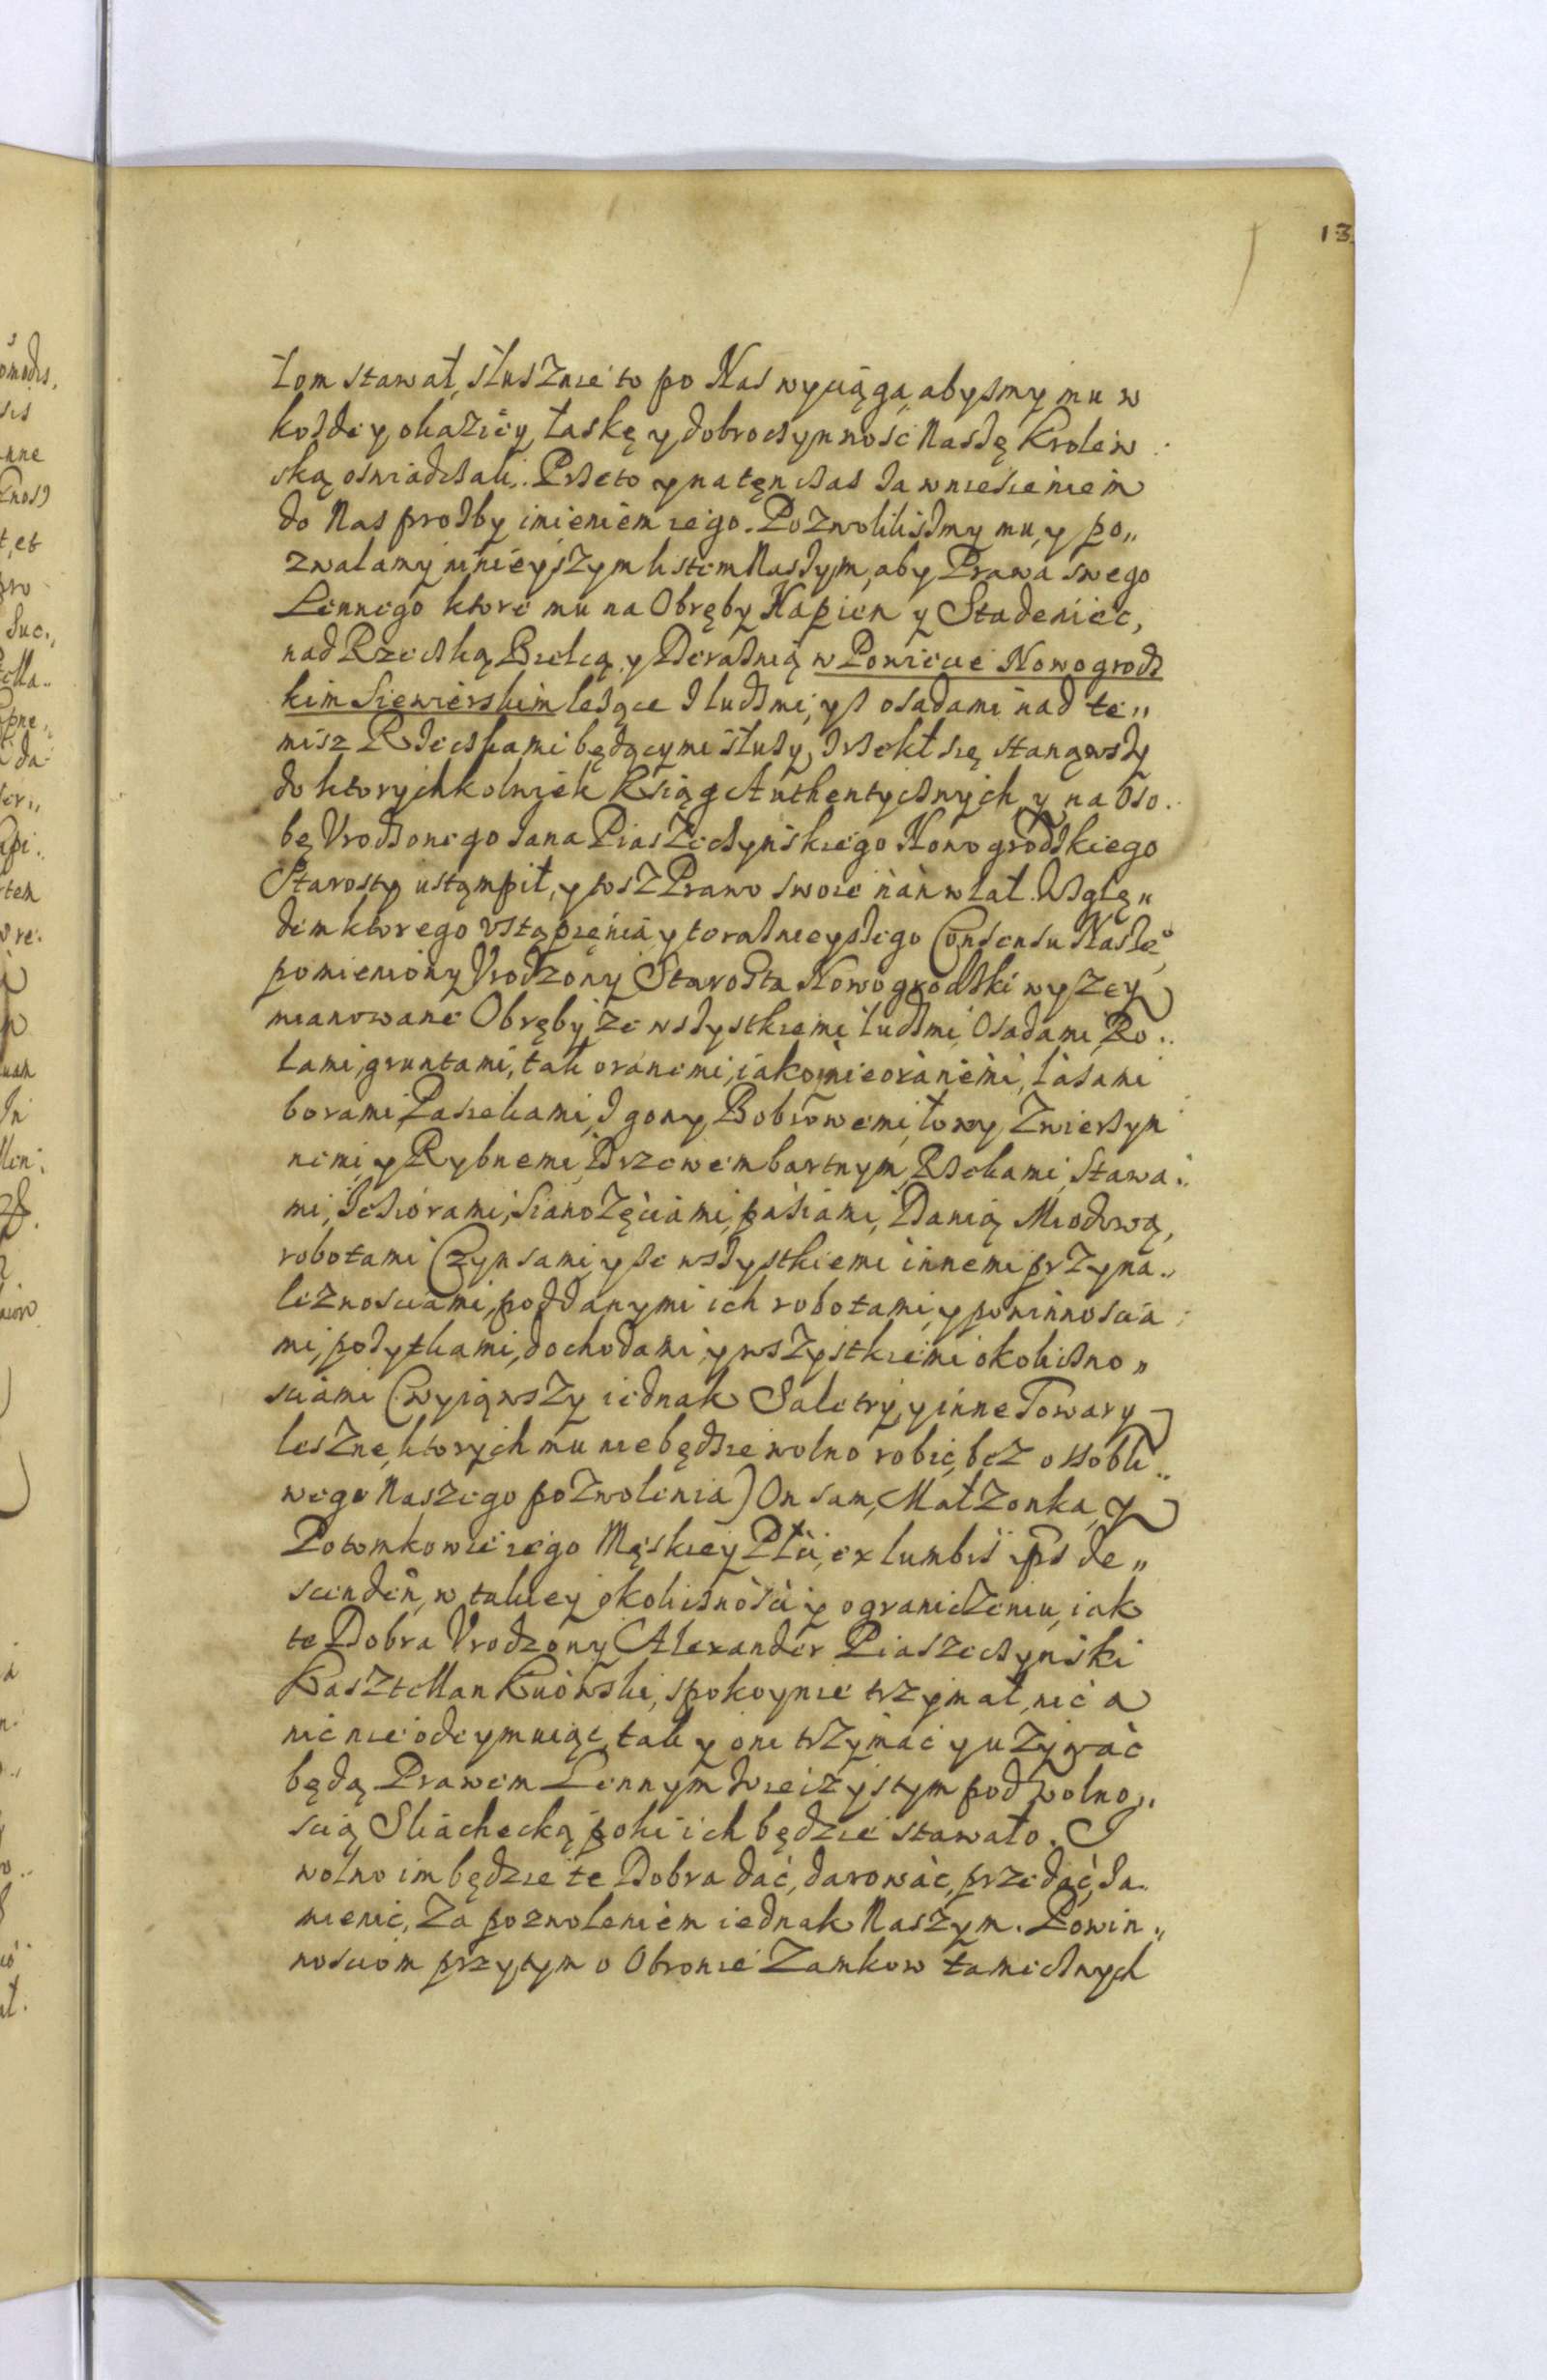 13
łom stawał, słusznie to po Nas wyciąga, abysmy mu w
kozdey okaziey łaskę y dobroczynnosć Naszę Krolew
ską oswiadczali. Przeto y na tęn czas za wniesieniem
do Nas prozby imieniem iego. Pozwolilismy mu, y po„
zwalamy ninieyszym listem Naszym, aby Prawa swego
Lennego ktore mu na Obręby Kapien y Stadeniec,
nad Rzeczką Bielcą y Deraznią w Powiecie Nowogrodz
kim Siewierskim lezące z ludzmi, y z osadami nad te„
misz Rzeczkami będącymi słuzy, zrzekł się stanąwszy
do ktorychkolwiek Ksiąg Authentycznych y na Oso„
bę Vrodzonego Jana Piaszeczynskiego Nowogrodzkiego
Starosty ustąmpił, y wsz Prawo swoie nan wlał. Wzglę„
dem ktorego vstąpięnia y teraznieyszego Consensu Nasze°
pomieniony Vrodzony Starosta Nowogrodzki wyzey
mianowane Obręby ze wszystkiemi ludzmi Osadami, Ro„
lami, gruntami, tak oranemi, iako nieoranemi, lasami
borami Pasiekami, z gony Bobrowemi, łowy Zwierzyn
nemi y Rybnemi, Drzewem bartnym, Rzekami, Stawa„
mi, Jeziorami, Sianozęciami, pasiami, Danią Miodową,
robotami Czynsami y ze wszystkiemi innemi przyna„
leznosciami, poddanymi ich robotami, y powinnoscia
mi, pozytkami, dochodami, y wszystkiemi okoliczno„
sciami (wyiąwszy iednak Saletry, y inne Towary
leszne, ktorych mu niebędzie wolno robić, bez osobli„
wego Naszego pozwolenia) On sam, Małzonka, y
Potomkowie iego Męskiey Płci, ex lumbis ips de„
scenden, w takiey okolicznosci y ograniczeniu, iak
te Dobra Vrodzony Alexander Piaszeczynski
Kasztellan Kiiowski, spokoynie trzymał, nic a
nic nie odeymuiąc, tak y oni trzymać y uzywać
będą Prawem Lennym Wieczystym pod wolno„
scią Sliachecką poki ich będzie stawało. I
wolno im będzie te Dobra dać, darować, przedać, za„
mienić, Za pozwoleniem iednak Naszym. Powin„
nosciom przytym o Obronie Zamkow tamecznych